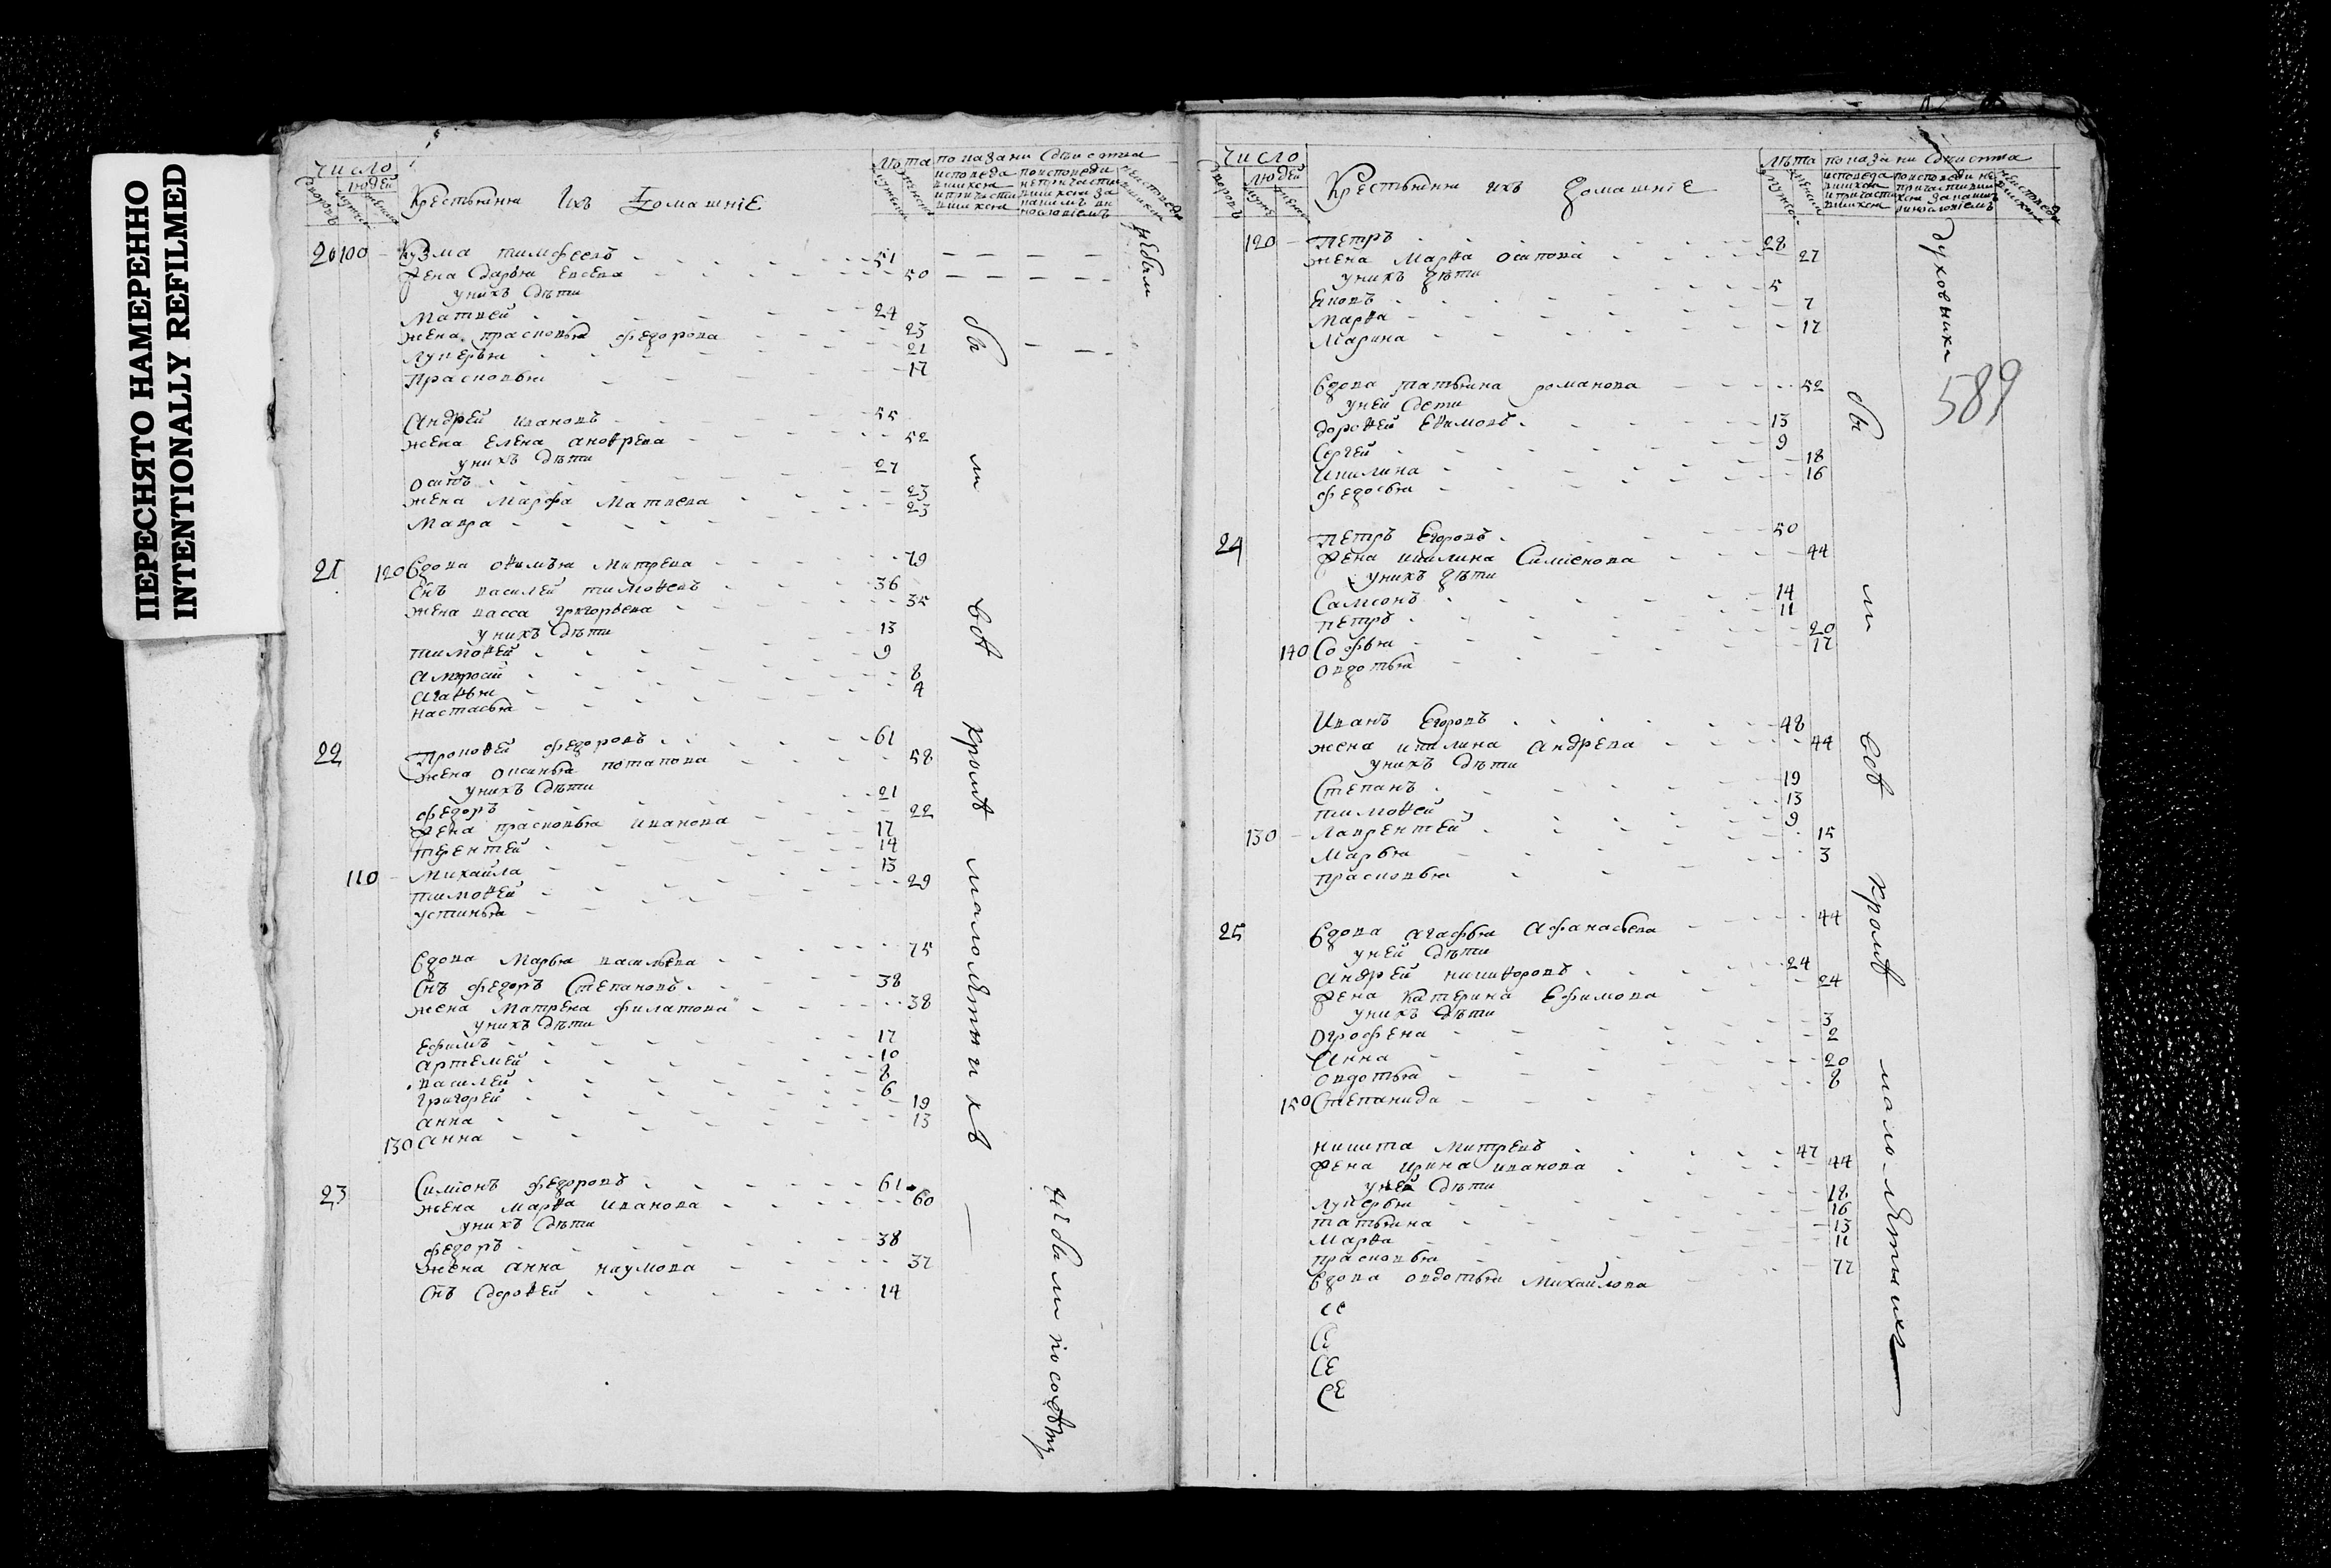 ПЕРЕСНЯТО НАМЕРЕННО
INTENTIONALLY REFILMED
Число
людей
Крестьяня Ихъ Домашнiе
лѣта показани
20 100 Кузма тимофеевъ 51
жена дарья 50
у нихъ дѣти
Матвей 24
жена прасковья федорова 23
лукерья 21
Прасковья 17
Андрей ивановъ 55
жена Елена андрева 52
у нихъ дѣти
осипъ 27
жена Марфа Матвева 23
Мавра 23
21 120 Вдова Митрева 79
Снъ василей тимоѳевъ 36
жена васса григорьева 35
у нихъ дѣти
тимоѳей 13
амвросий 9
агаѳья 8
настасья 4
22 Прокоѳей федоровъ 61
жена оксинья потапова 58
у нихъ дѣти
федоръ 21
жена прасковья иванова 22
терентей 17
110 Михайла 14
тимоѳей 13
устинья 29
Вдова Марья васильева 75
Снъ федоръ Степановъ 38
жена Матрена филатова 38
у нихъ дѣти
Ефимъ 17
артемей 10
василей 8
григорей 6
анна 19
130 анна 13
23 Симионъ федоровъ 61
жена Марѳа иванова 60
у нихъ дѣти
федоръ 38
жена анна наумова 37
Снъ дороѳей 14
бы ли всѣ кромѣ малолѣтныхъ
небыли
небыли по совѣту
Число
людей
Крестьяня ихъ домашнiе
лѣта показани
120 Петръ 28
жена Марѳа осипова 27
у нихъ дѣти
Яковъ 5
Марѳа 7
Марина 17
Вдова татьяна романова 52
у ней дети
дороѳей Еѳимовъ 13
Сергей 9
Акилина 18
федосья 16
24 Петръ Егоровъ 50
жена акилина Симионова 44
у нихъ дѣти
Самсонъ 14
петръ 11
140 Софья 20
овдотья 17
Иванъ Егоровъ 48
жена акилина андрева 44
у нихъ дѣти
Степанъ 19
тимоѳей 13
130 лаврентей 9
Марья 15
прасковья 3
25 Вдова агафья афанасьева 44
у ней дѣти
андрей никиѳоровъ 24
жена катерина Ефимова 24
у нихъ дѣти
огрофена 3
Анна 2
овдотья 20
150 Степанида 8
никита Митревъ 47
жена ирина иванова 44
у ней дѣти
лукерья 18
татьяна 16
Марѳа 13
прасковья 11
Вдова овдотья Михайлова 77
духовника
589
бы ли всѣ кромѣ малолѣтныхъ